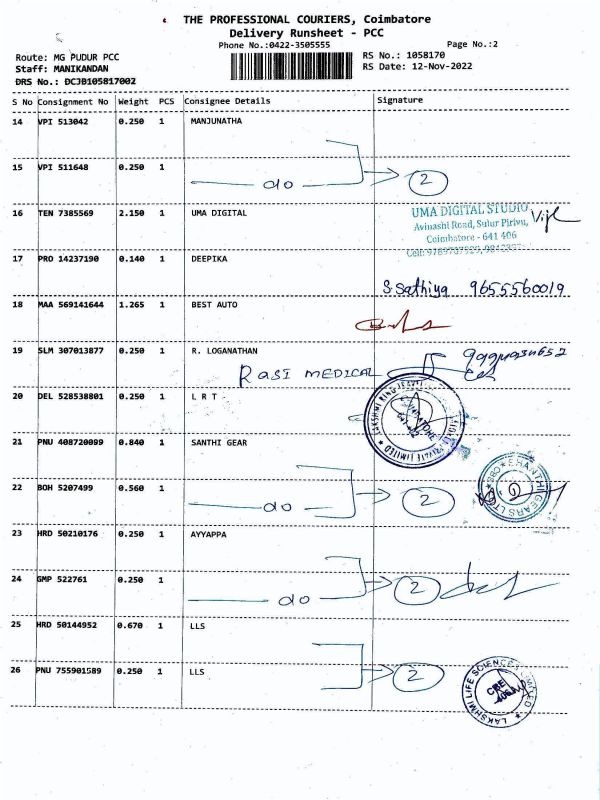 THE PROFESSIONAL COURIERS, Coimbatore
Delivery Runsheet - PCC
Phone No.:0422-3505555
Page No.:2
Route: MG PUDUR PCC
Staff: MANIKANDAN
DRS No.: DCJB105817002
RS No.: 1058170
RS Date: 12-Nov-2022
S No Consignment No Weight PCS Consignee Details Signature
14 VPI 513042 0.250 1 MANJUNATHA
15 VPI 511648 0.250 1
do 2
16 TEN 7385569 2.150 1 UMA DIGITAL
UMA DIGITAL STUDIO
Avinashi Road, Sulur Pirivu,
Coimbatore - 641 406
17 PRO 14237190 0.140 1 DEEPIKA
S Sathiya 9655560019
18 MAA 569141644 1.265 1 BEST AUTO
19 SLM 307013877 0.250 1 R. LOGANATHAN
RASI MEDICAL
20 DEL 528538801 0.250 1 L R T
21 PNU 408720099 0.840 1 SANTHI GEAR
22 BOH 5207499 0.560 1
do 2
23 HRD 50210176 0.250 1 AYYAPPA
24 GMP 522761 0.250 1
do 2
25 HRD 50144952 0.670 1 LLS
26 PNU 755901589 0.250 1 LLS
2
LAKSHMI LIFE SCIENCES LIMITED
CBE